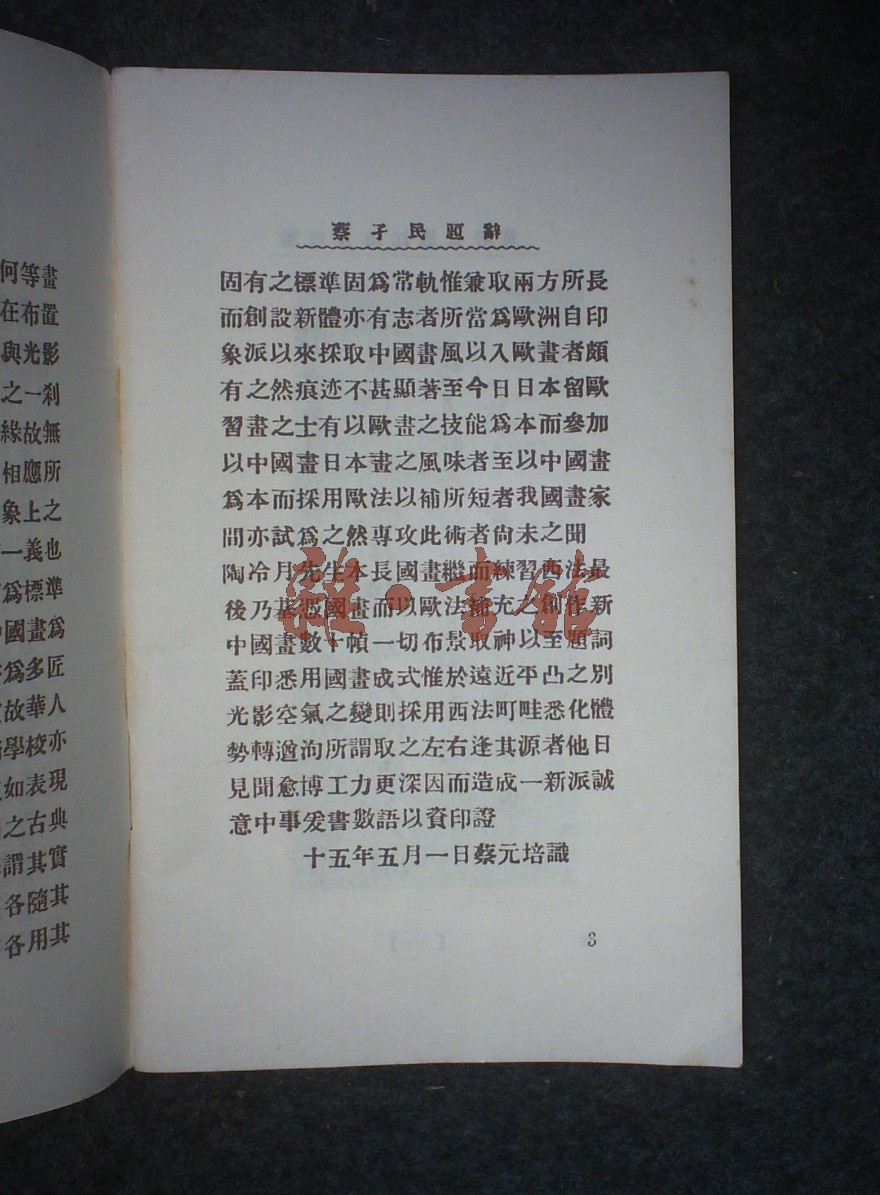 何等畫
在布置
與光影
之一刹
緣故無
相應所
象上之
一義也
爲標準
國畫爲
爲多匠
故華人
學校亦
如表現
之古典
謂其實
各隨其
各用其
蔡孑民題辭
固有之標準固爲常軌惟兼取兩方所長
而創設新體亦有志者所當爲歐洲自印
象派以來採取中國畫風以入歐畫者頗
有之然痕迹不甚顯著至今日日本留歐
習畫之士有以歐畫之技能爲本而參加
以中國畫日本畫之風味者至以中國畫
爲本而採用歐法以補所短者我國畫家
間亦試爲之然專攻此術者尙未之聞
陶冷月先生本長國畫繼而練習西法最
後乃基憑國畫而以歐法補充之創作新
中國畫數十幀一切布景取神以至題詞
蓋印悉用國畫成式惟於遠近平凸之別
光影空氣之變則採用西法町畦悉化體
勢轉遒洵所謂取之左右逢其源者他日
見聞愈博工力更深因而造成一新派誠
意中事爰書數語以資印證
十五年五月一日蔡元培識
3
雜·書館